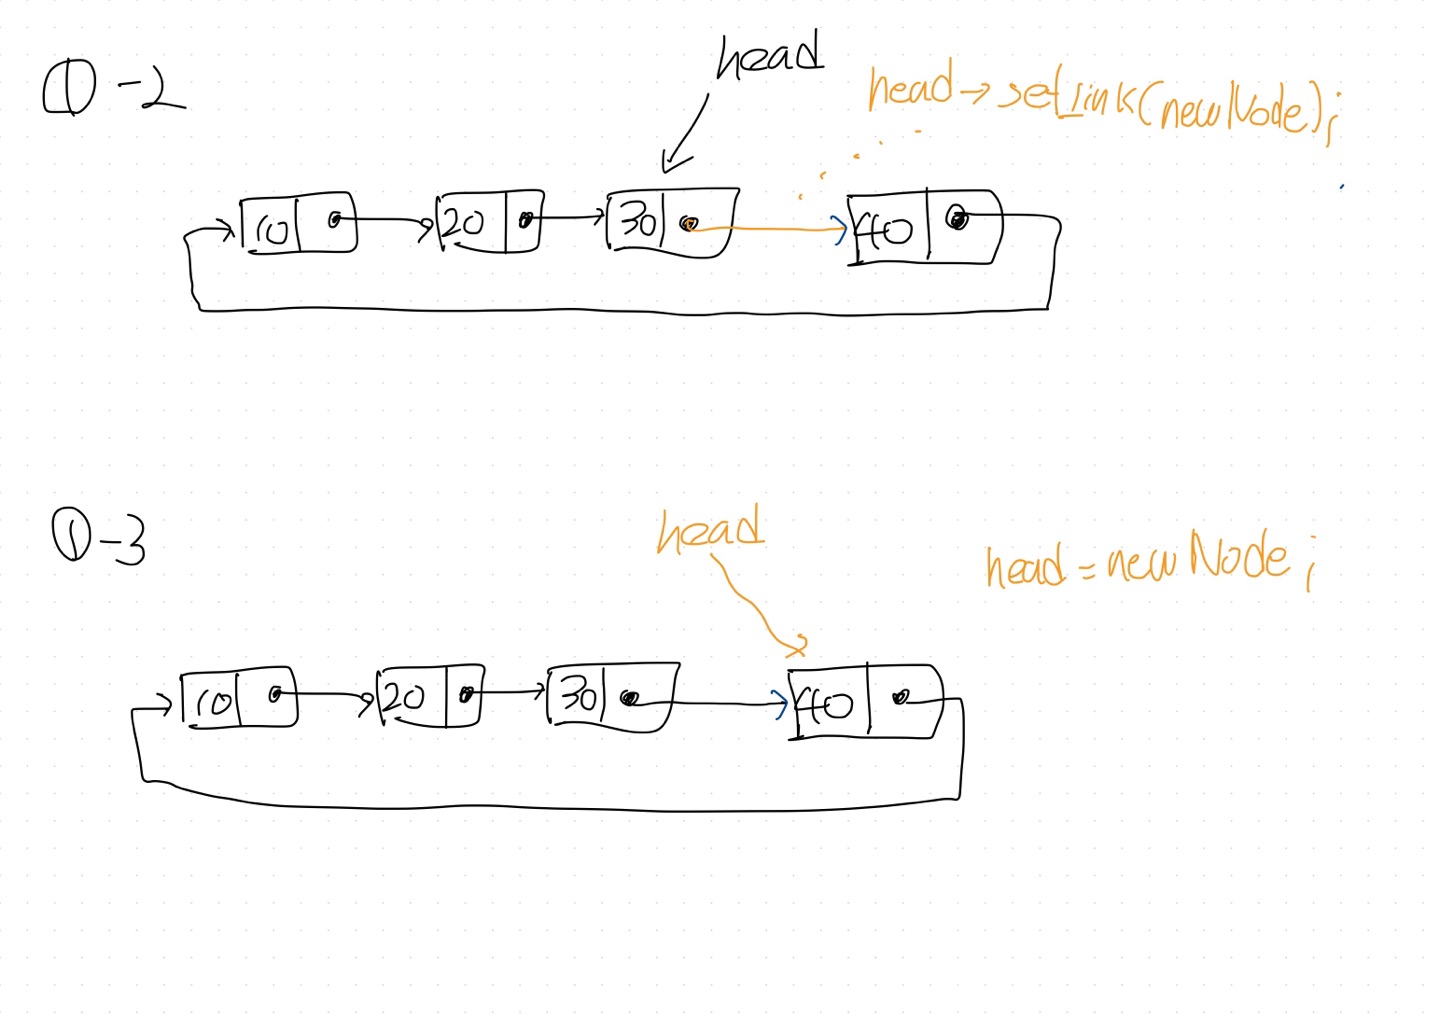 ①-2
head
head→setLink(newNode);
10 20 30 40
①-3
head
head=newNode;
10 20 30 40